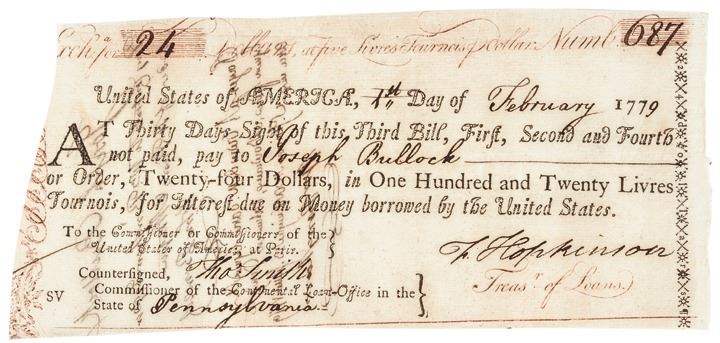 Exchᵃ for 24 Dollars, at five Livres Tournois ⅌ Dollar. Numb. 687
United States of AMERICA, 1st Day of February 1779
AT Thirty Days Sight of this Third Bill, First, Second and Fourth
not paid, pay to Joseph Bullock
or Order, Twenty-four Dollars, in One Hundred and Twenty Livres
Tournois, for Interest due on Money borrowed by the United States.
To the Commissioner or Commissioners of the
United States of America, at Paris.
F. Hopkinson
Treasʳ of Loans.
Countersigned, Thoˢ Smith
Commissioner of the Continental Loan-Office in the
SV State of Pennsylvania.